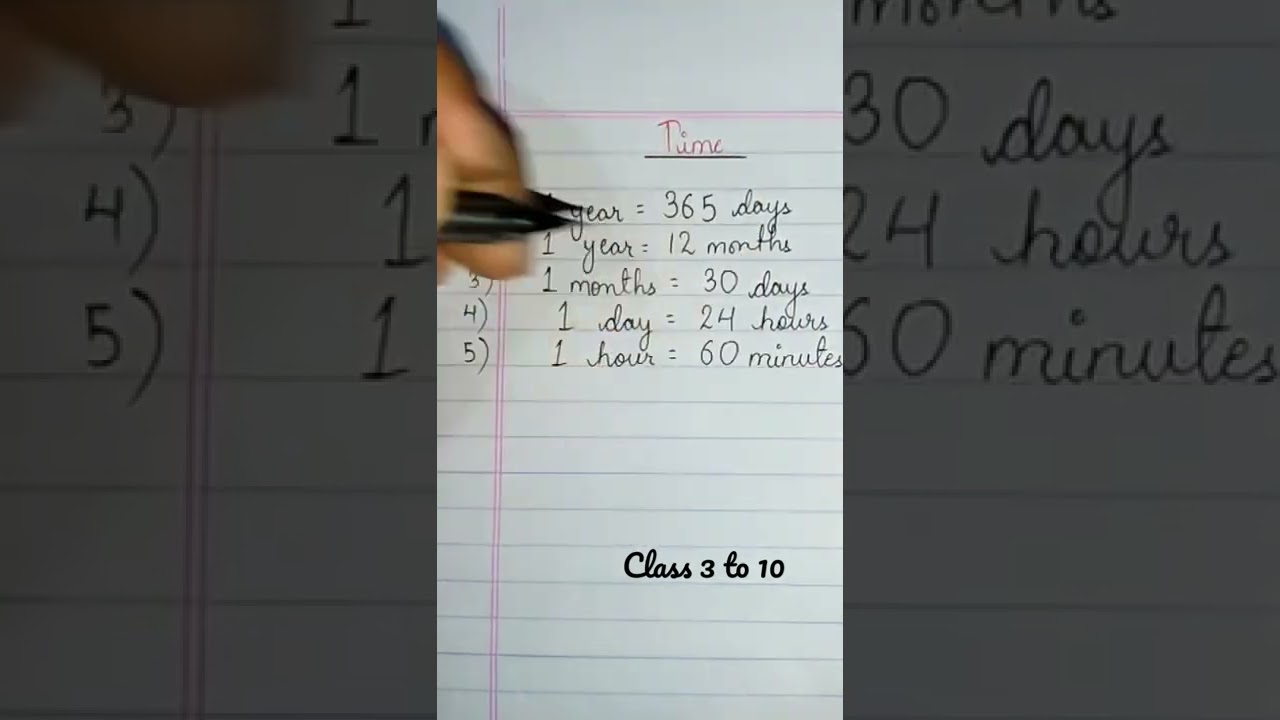 Time
year = 365 days
1 year = 12 months
3) 1 months = 30 days
4) 1 day = 24 hours
5) 1 hour = 60 minutes
Class 3 to 10